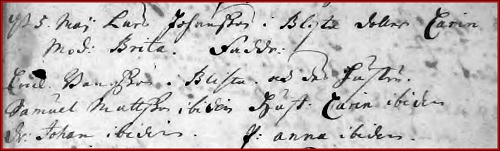 d 5. Maj Lars Johansson i Blixta dotter Carin
Mod: Brita. Faddr:
Eric Hansson i Blixta ad des Hustru.
Samuel Mattsson ibidem Hust. Carin ibidem
Dr: Johan ibidem. P: anna ibidem.